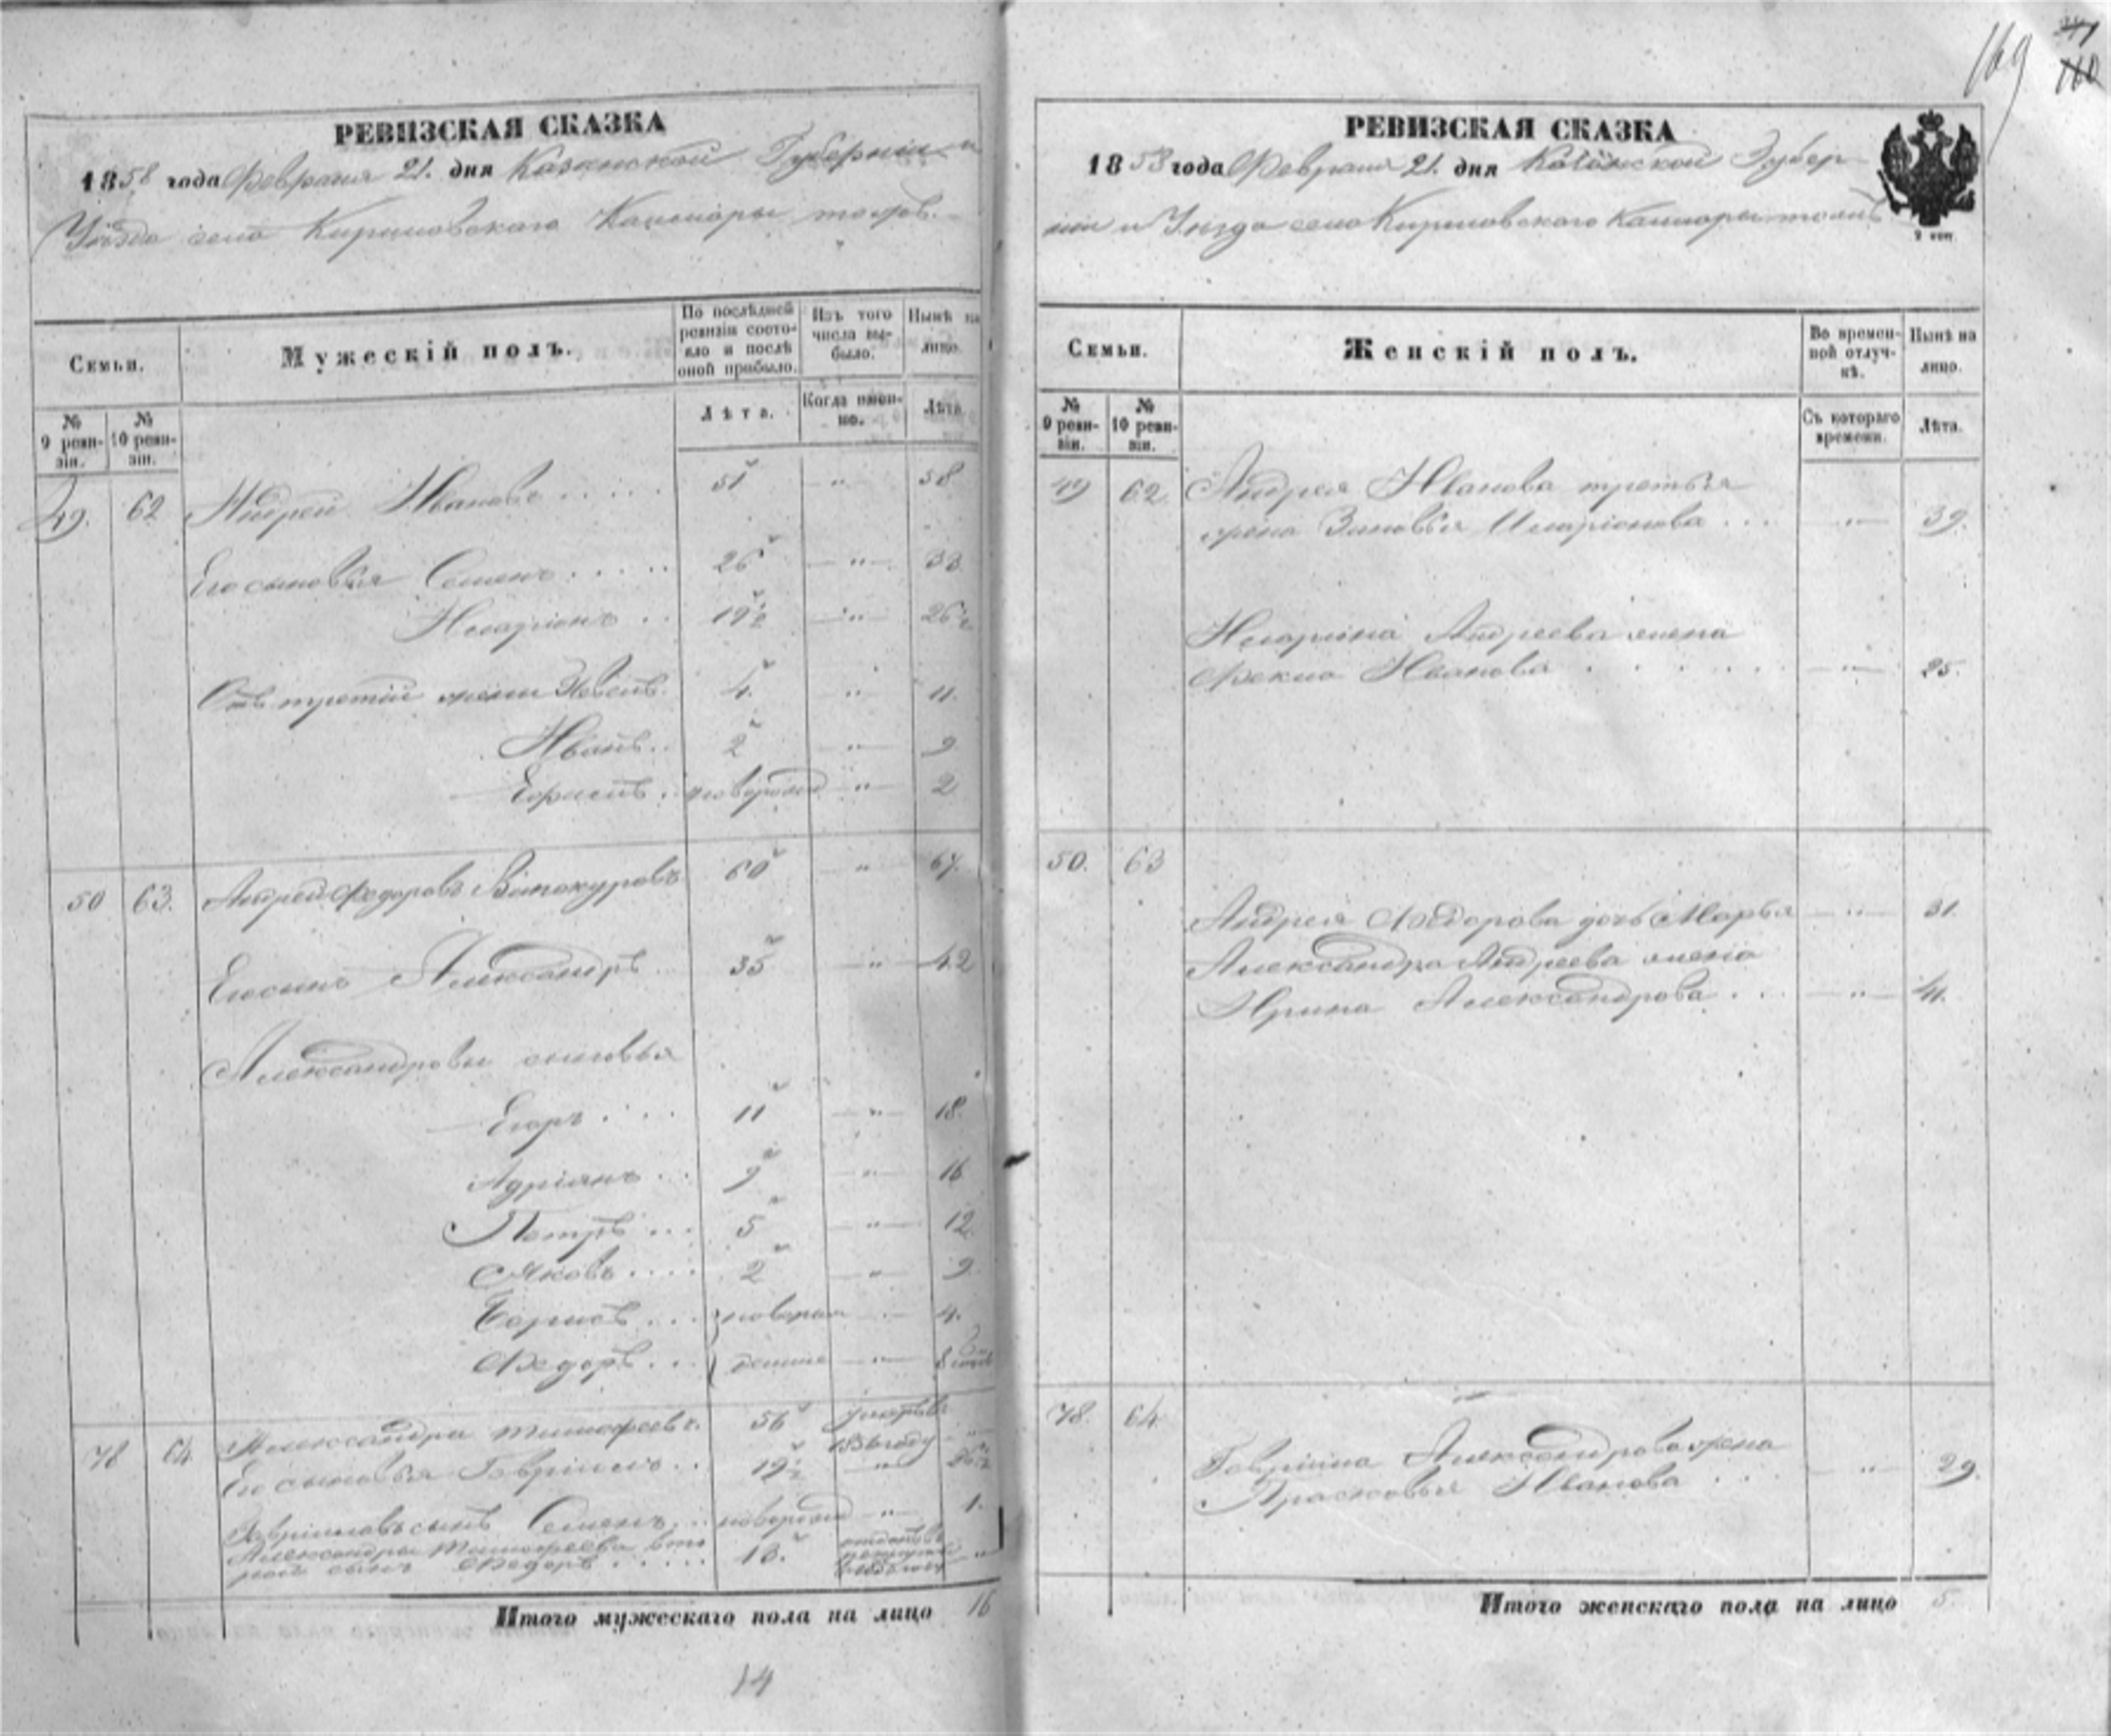 РЕВИЗСКАЯ СКАЗКА
1858 года Февраля 21. дня Казанской Губернии и
Уѣзда села Кириловскаго
Семьи.
Мужескій полъ.
По послѣдней ревизіи состояло и послѣ оной прибыло.
Изъ того числа выбыло.
Нынѣ на лицо.
№ 9 ревизіи.
№ 10 ревизіи.
Лѣта.
Когда именно.
Лѣта.
49. 62 Андрей Ивановъ 51 " 58
Его сыновья Семенъ 26 " 33
Иларіонъ 19½ " 26½
Отъ третій жены 4. " 11.
Иванъ 2 " 9
новорожд " 2
50 63. Андрей Федоровъ Винокуровъ 60 " 67.
Его сынъ Александръ 35 " 42
Александровы сыновья
Егоръ 11 " 18.
Адріянъ 9 " 16
Петръ 5 " 12
Яковъ 2 " 9.
Борисъ 4.
Федоръ "
78 64. Александра Тимофеевъ. 56 1856 году "
Его сыновья Гавріилъ 19½ " 26½
Гавріиловъ сынъ Семенъ новорожд " 1.
Александры Тимофеева вто
рой сынъ Федоръ 18. "
Итого мужескаго пола на лицо 16
14
169
РЕВИЗСКАЯ СКАЗКА
1858 года Февраля 21. дня Казанской Губер
ніи и Уѣзда села Кириловскаго
2 коп.
Семьи.
Женскій полъ.
Во временной отлучкѣ.
Нынѣ на лицо.
№ 9 ревизіи.
№ 10 ревизіи.
Съ котораго времени.
Лѣта.
49 62. Андрея Иванова третья
жена Зиновья Иларіонова " 39.
Иларіона Андреева жена
Фекла Иванова " 25.
50. 63
Андрея Федорова дочь Марья " 31.
Александра Андреева жена
Ирина Александрова " 41.
78. 64.
Гавріила Александрова жена
Прасковья Иванова " 29.
Итого женскаго пола на лицо 5.